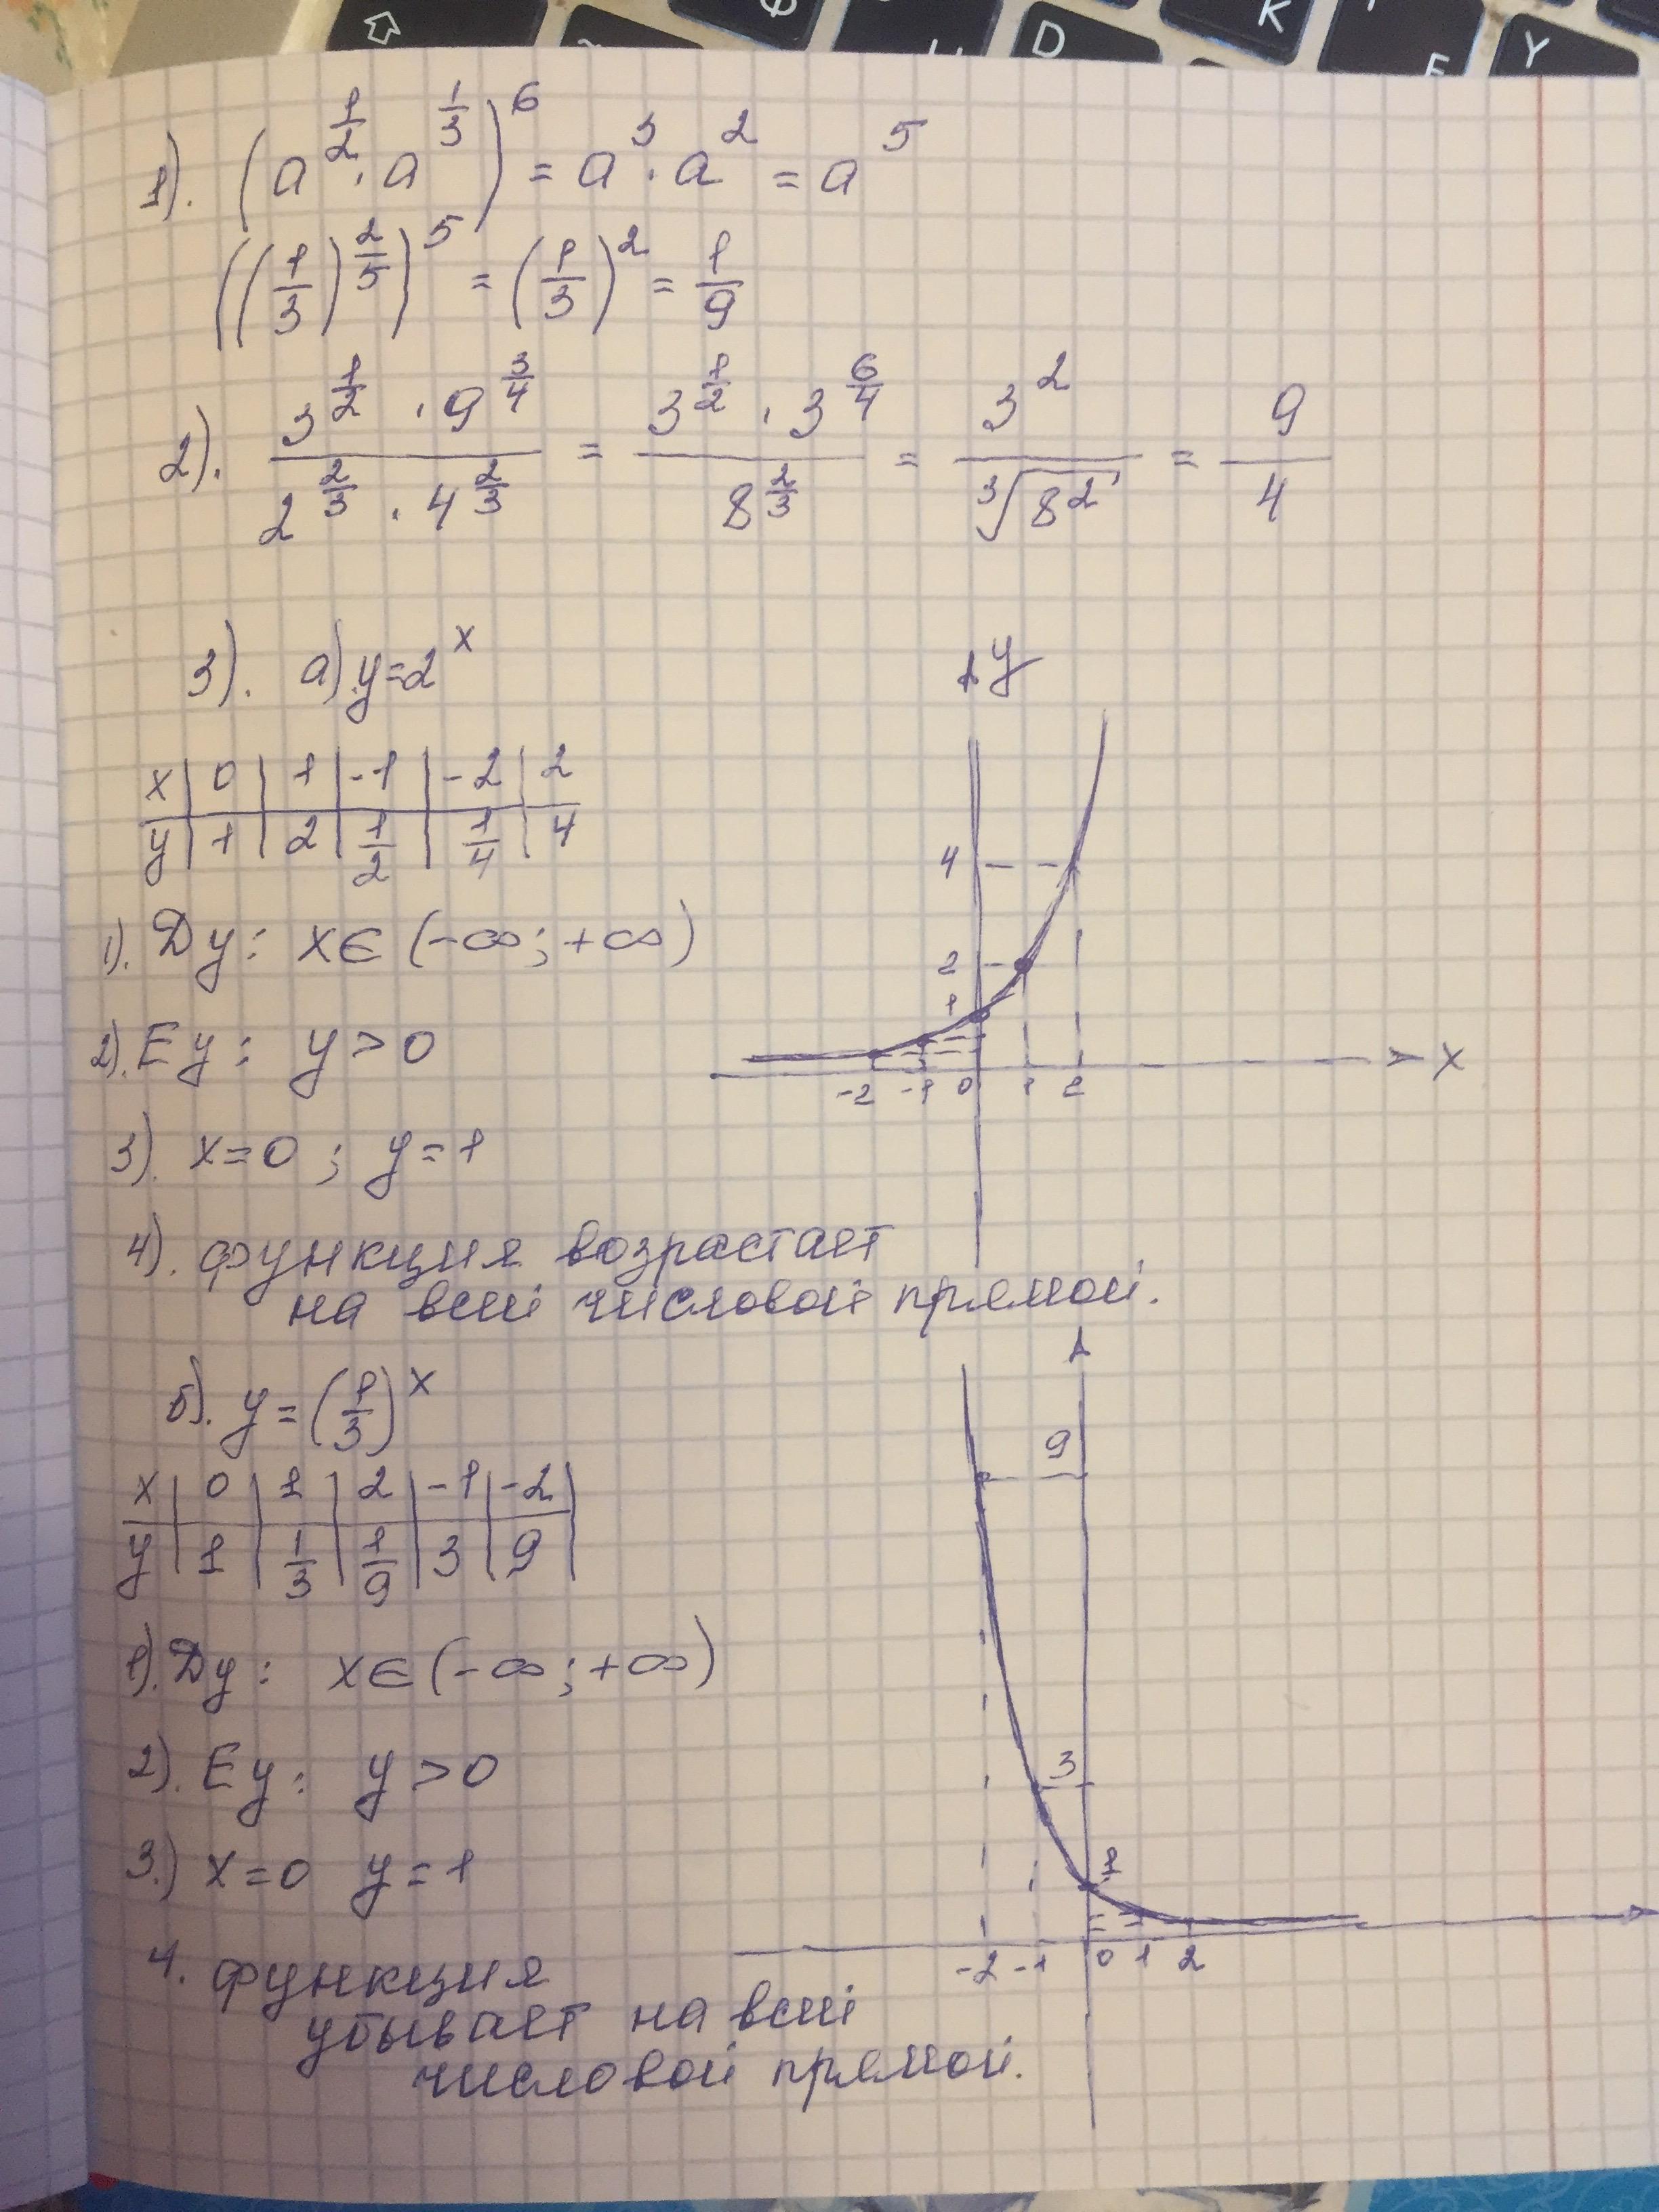 Ф
D
K
Y
1). (a^{1/2} · a^{1/3})^6 = a^3 · a^2 = a^5
((1/3)^{2/5})^5 = (1/3)^2 = 1/9
2). (3^{1/2} · 9^{3/4})/(2^{2/3} · 4^{2/3}) = (3^{1/2} · 3^{6/4})/(8^{2/3}) = 3^2/∛(8^2) = 9/4
3). а) y=2^x
x | 0 | 1 | -1 | -2 | 2
y | 1 | 2 | 1/2 | 1/4 | 4
1). Dy: x∈(-∞; +∞)
2). Ey: y>0
3). x=0 ; y=1
4). функция возрастает
на всей числовой прямой.
y
4
2
1
-2 -1 0 1 2
x
б). y=(1/3)^x
x | 0 | 1 | 2 | -1 | -2 |
y | 1 | 1/3 | 1/9 | 3 | 9 |
1). Dy: x∈(-∞; +∞)
2). Ey: y>0
3.) x=0 y=1
4. функция
убывает на всей
числовой прямой.
9
3
1
-2 -1 0 1 2